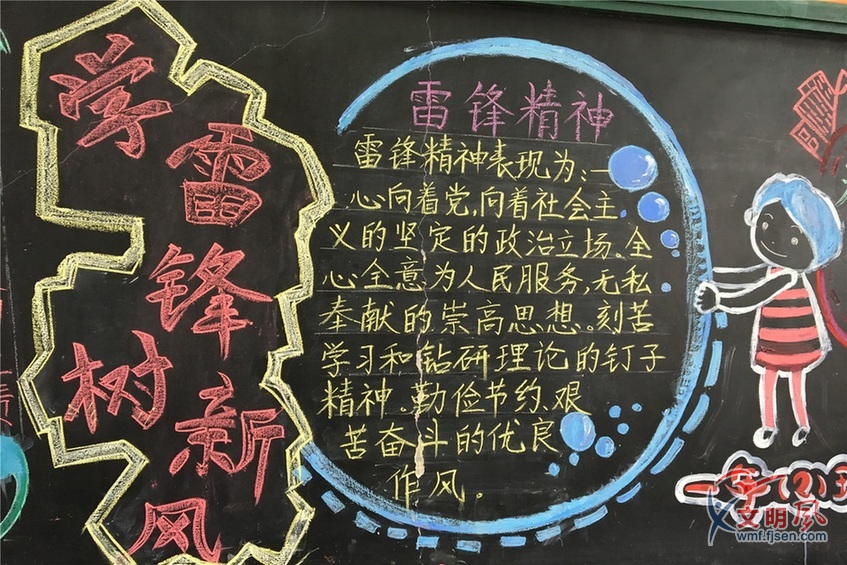 学
雷锋
树
新风
雷锋精神
雷锋精神表现为:一
心向着党,向着社会主
义的坚定的政治立场。全
心全意为人民服务,无私
奉献的崇高思想。刻苦
学习和钻研理论的钉子
精神。勤俭节约、艰
苦奋斗的优良
作风。
一年(2)
文明风
wmf.fjsen.com